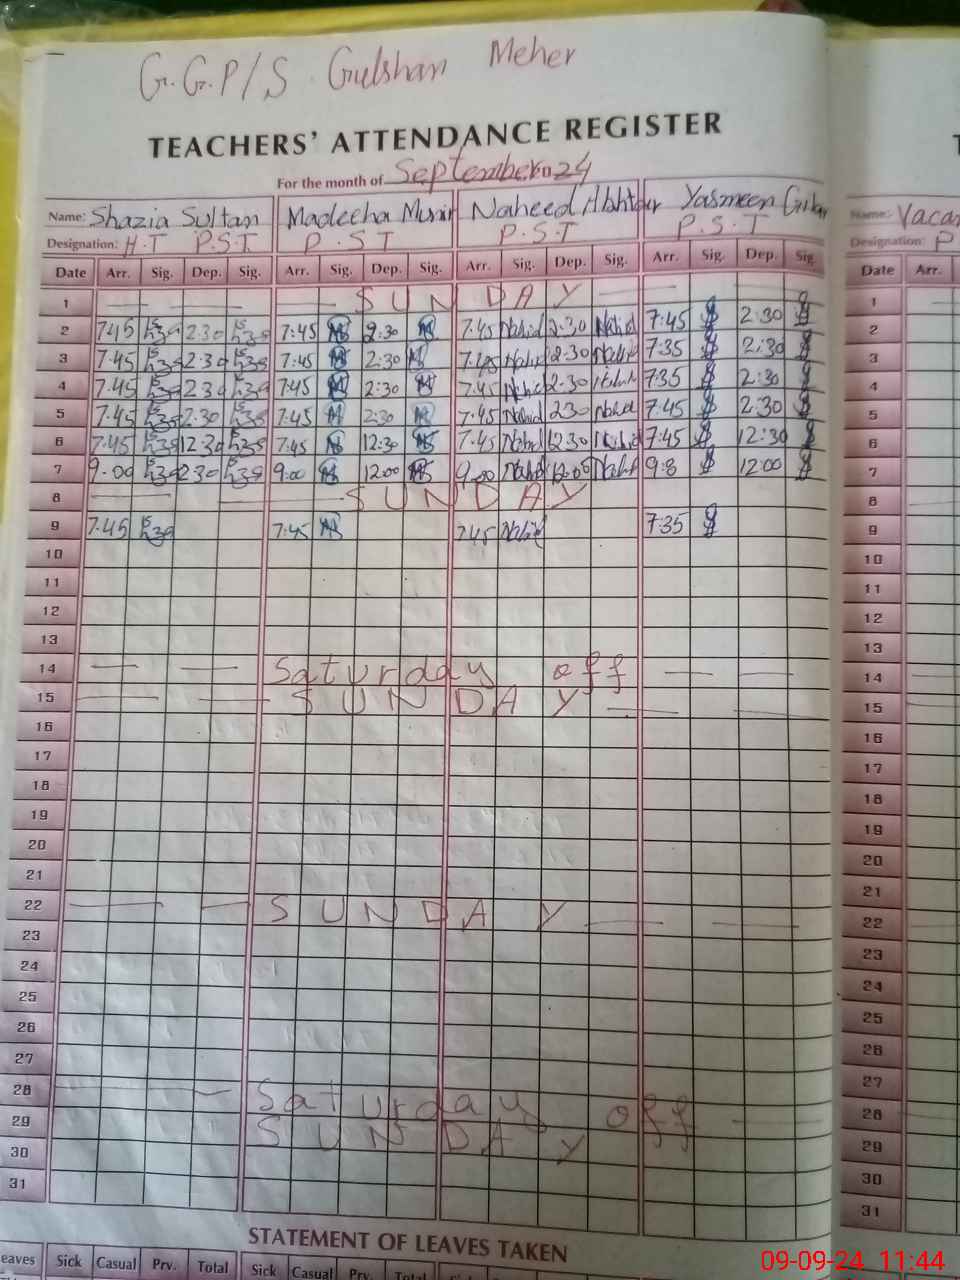 G.G.P/S. Gulshan Meher
TEACHERS' ATTENDANCE REGISTER
For the month of September 24
Name: Shazia Sultan Madeeha Munir Naheed Akhtar Yasmeen
Designation: H.T P.S.T P.S.T P.S.T P.S.T
Date Arr. Sig. Dep. Sig. Arr. Sig. Dep. Sig. Arr. Sig. Dep. Sig. Arr. Sig. Dep. Sig.
1 SUNDAY
2 7.45 2:30 7:45 2:30 7.45 Nahid 2.30 Nahid 7:45 2:30
3 7.45 2:30 7:45 2:30 7.45 Nahid 2.30 Nahid 7:35 2:30
4 7.45 2:30 7:45 2:30 7.45 Nahid 2.30 Nahid 7:35 2:30
5 7.45 2:30 7:45 2:30 7.45 Nahid 2 30 Nahid 7:45 2:30
6 7.45 12:30 7:45 12:30 7.45 Nahid 12 30 Nahid 7:45 12:30
7 9.00 9:00 12:00 9.00 Nahid 12:00 Nahid 9:8 12:00
8 SUNDAY
9 7.45 7:45 7 45 Nahid 7:35
10
11
12
13
14 Saturday off
15 SUNDAY
16
17
18
19
20
21
22 SUNDAY
23
24
25
26
27
28 Saturday off
29 SUNDAY
30
31
STATEMENT OF LEAVES TAKEN
eaves Sick Casual Prv. Total Sick Casual Prv. Total
Name: Vacan
Designation: P
Date Arr.
1
2
3
4
5
6
7
8
9
10
11
12
13
14
15
16
17
18
19
20
21
22
23
24
25
26
27
28
29
30
31
09-09-24 11:44